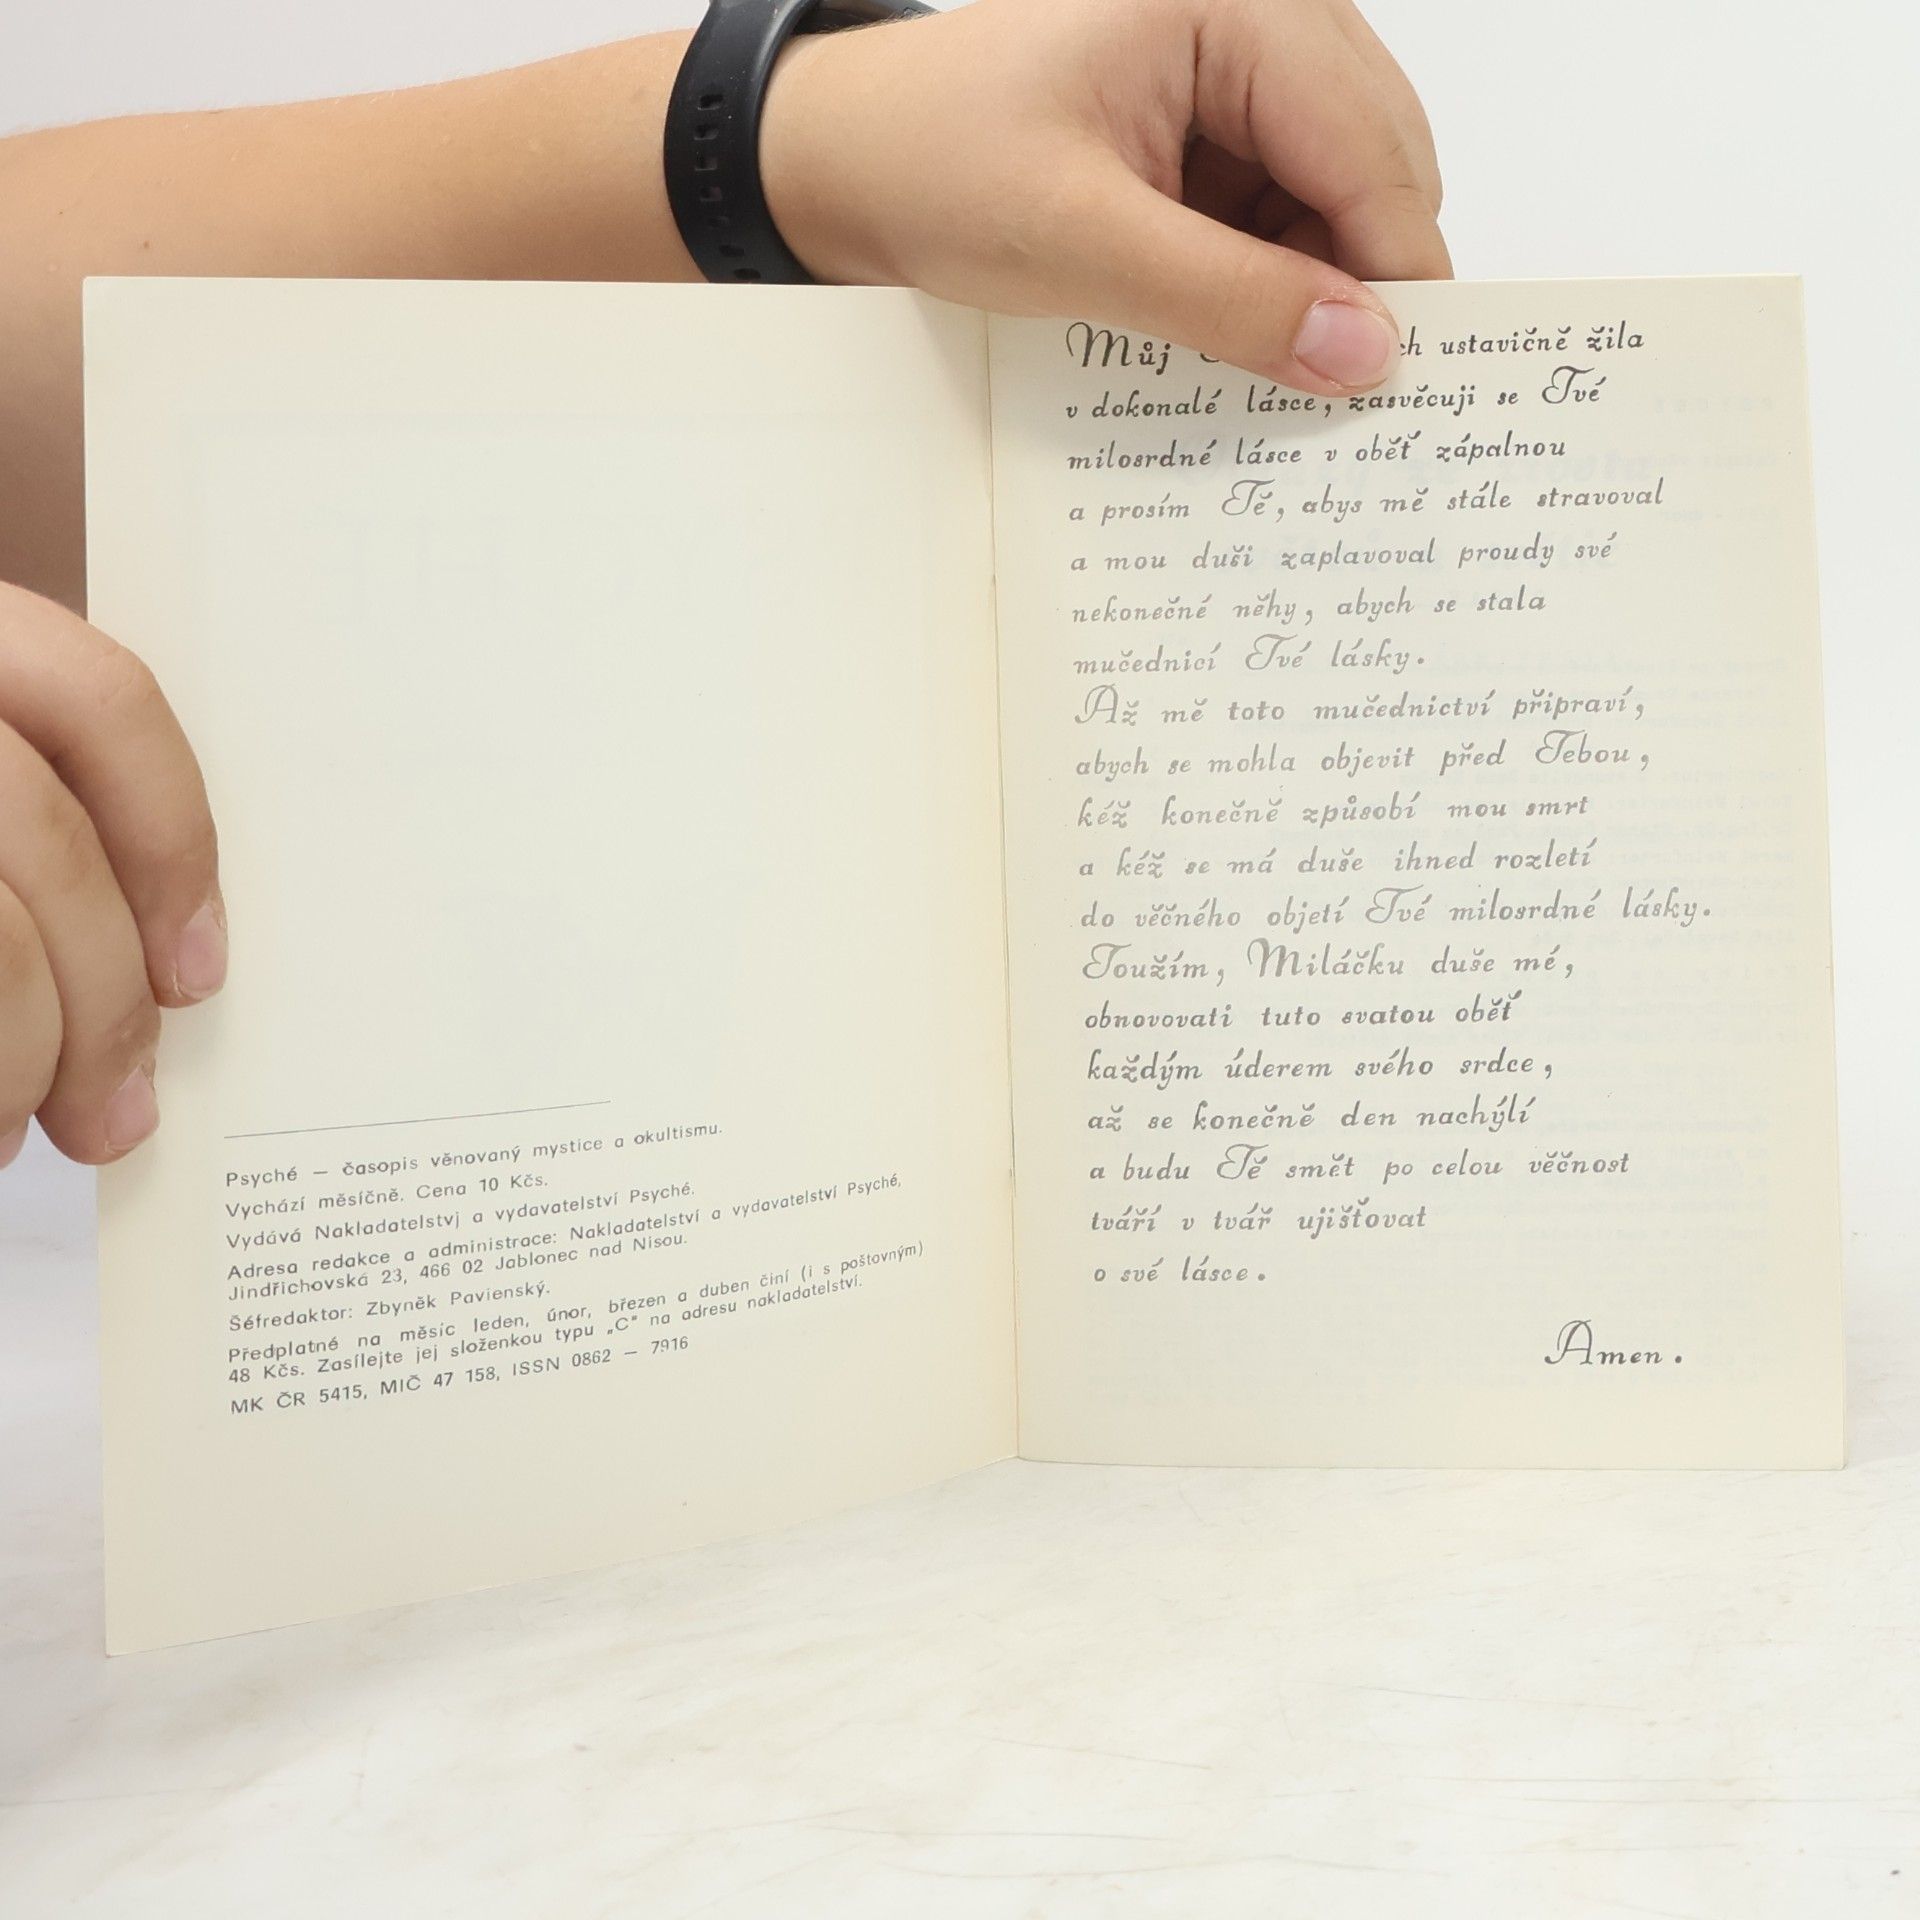 Psyché — časopis věnovaný mystice a okultismu.
Vychází měsíčně. Cena 10 Kčs.
Vydává Nakladatelstvj a vydavatelství Psyché.
Adresa redakce a administrace: Nakladatelství a vydavatelství Psyché,
Jindřichovská 23, 466 02 Jablonec nad Nisou.
Šéfredaktor: Zbyněk Pavienský.
Předplatné na měsíc leden, únor, březen a duben činí (i s poštovným)
48 Kčs. Zasílejte jej složenkou typu „C" na adresu nakladatelství.
MK ČR 5415, MIČ 47 158, ISSN 0862 — 7916
Můj ustavičně žila
v dokonalé lásce, zasvěcuji se Tvé
milosrdné lásce v oběť zápalnou
a prosím Tě, abys mě stále stravoval
a mou duši zaplavoval proudy své
nekonečné něhy, abych se stala
mučednicí Tvé lásky.
Až mě toto mučednictví připraví,
abych se mohla objevit před Tebou,
kéž konečně způsobí mou smrt
a kéž se má duše ihned rozletí
do věčného objetí Tvé milosrdné lásky.
Toužím, Miláčku duše mé,
obnovovati tuto svatou oběť
každým úderem svého srdce,
až se konečně den nachýlí
a budu Tě smět po celou věčnost
tváří v tvář ujišťovat
o své lásce.
Amen.